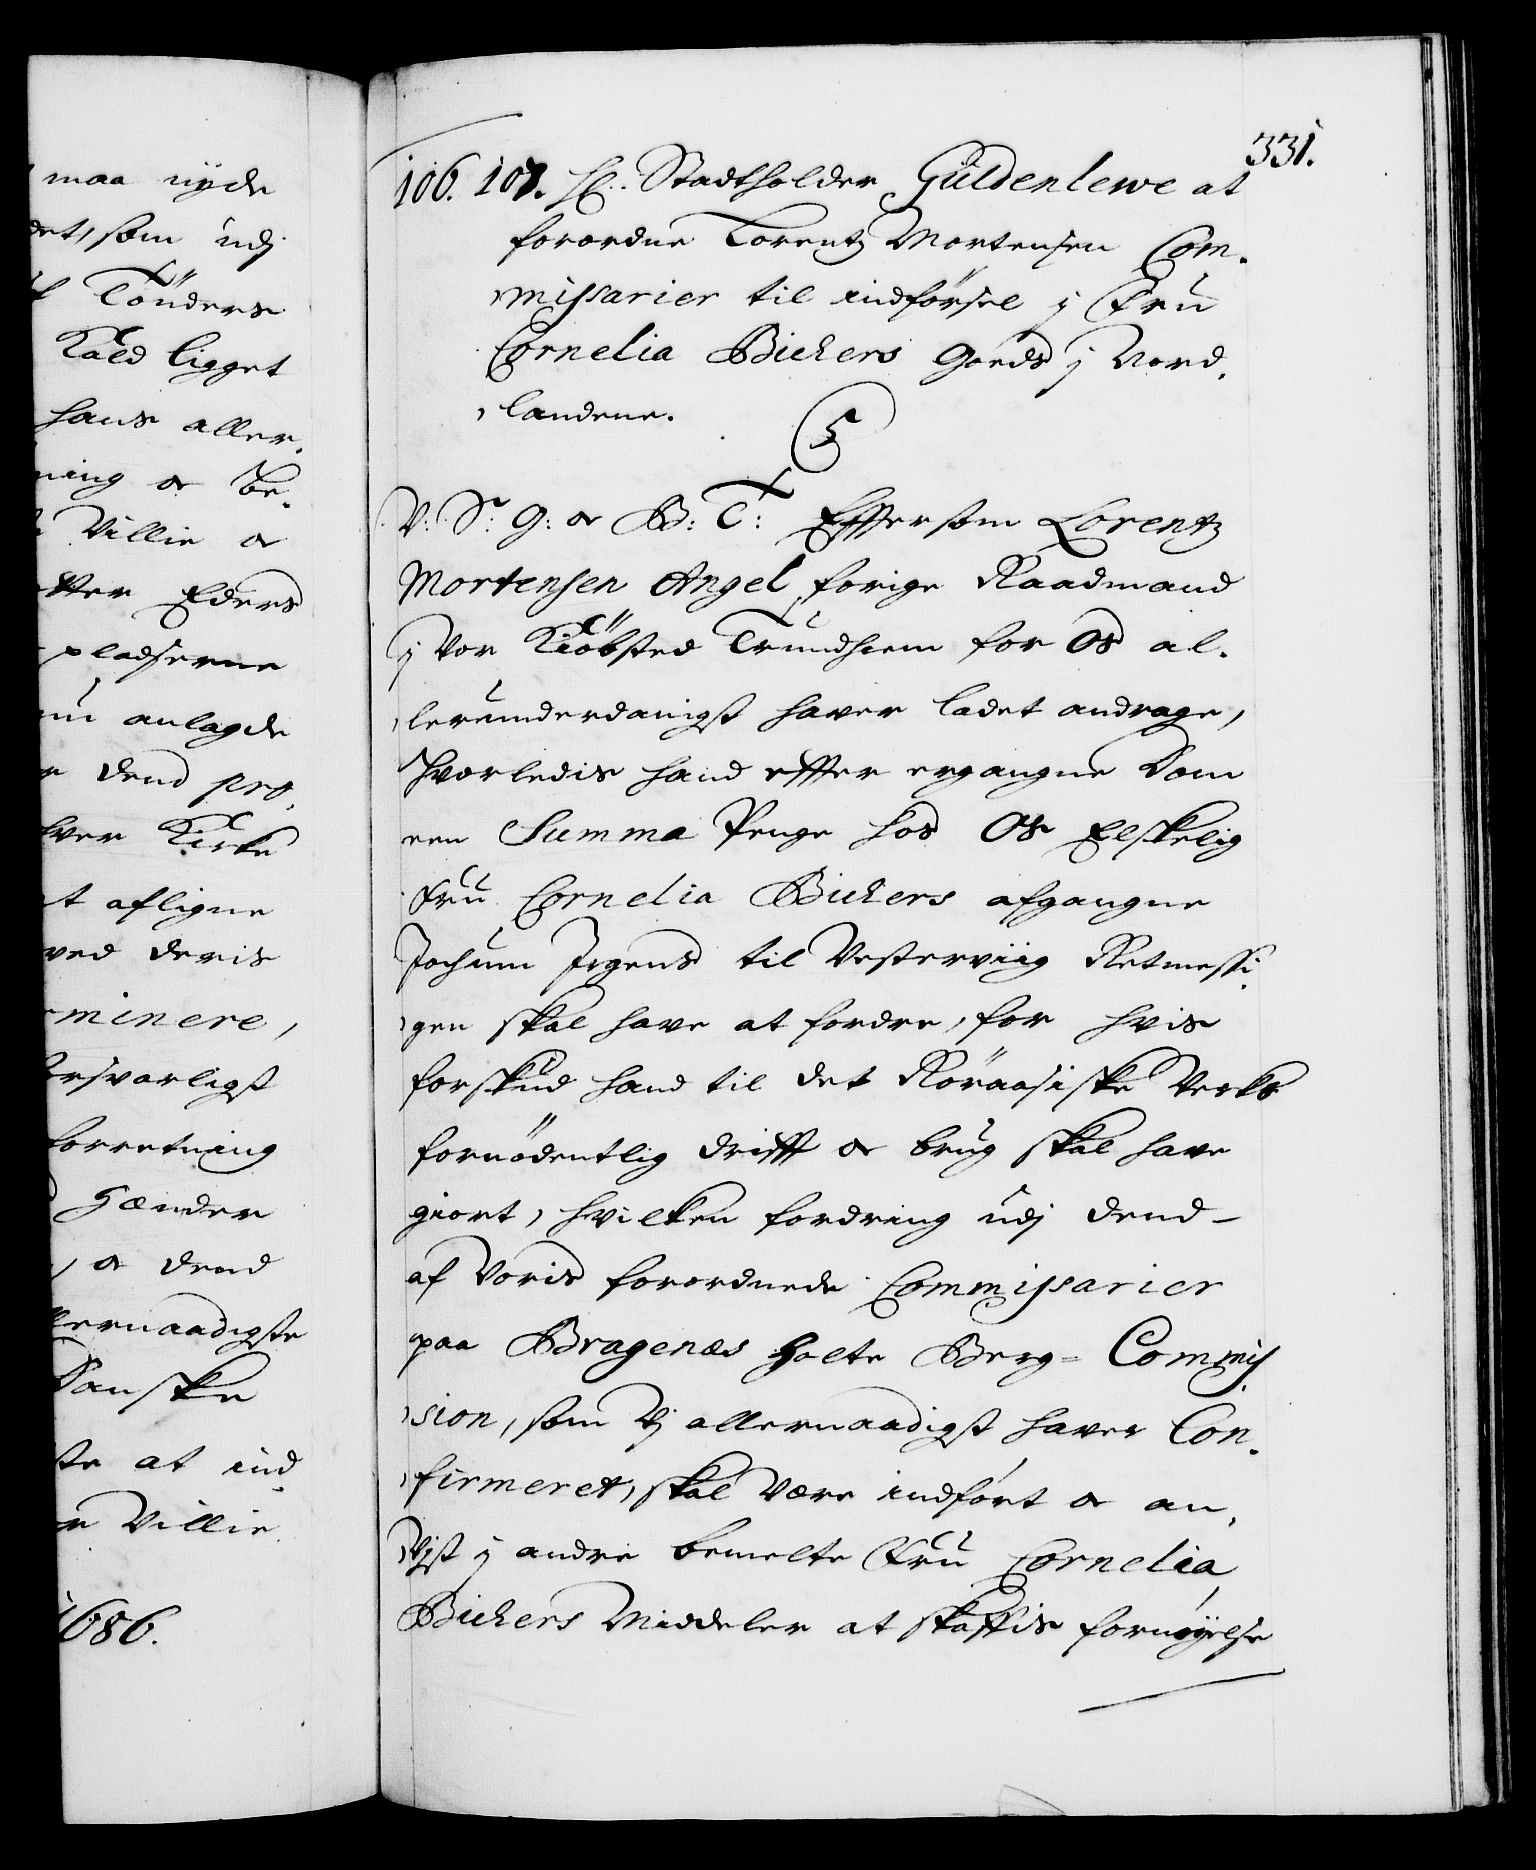 maa nyde
det, som udj
Tönders
Kald ligget
hans aller,
ning oc be,
Villie oc
tter Eders
pladserne
nu anlagde
dend pro,
hver Kirke
t afligne
ved deris
minere,
forsvarligst
forretning
Hænder
, oc dend
lernaadigste
Danske
ste at ind
Villie
1686.
331.
106. 107. H. Stadtholder Güldenlewe at
forordne Lorentz Mortensen Com,
missarier til indförsel j Fru
Cornelia Bickers Goeds j Nord,
landene.
C5
V: S: G: oc B: T: Effter som Lorentz
Mortensen Angel, forige Raadmand
j Vor Kiöbsted Trundhiem for Os al,
lerunderdanigst haver ladet andrage,
hvorledis hand effter ergangne Dom
een Summa Penge hos Os Elskelig
Fru Cornelia Bickers afgangne
Jochum Irgens til Vesterviig Retmessi,
gen skal have at fordre, for hvis
forskud hand til det Röraasiske Verks
fornödentlig drifft oc brug skal have
giort, hvilken fordring udj dend
af Voris forordnede Commissarier
paa Bragenæs holte Berg=Commis,
sion, som Vj allernaadigst haver Con,
firmeret, skal være indfört oc an,
vjst j andre bemelte Fru Cornelia
Bickers Middeler at skaffis fornöyelse